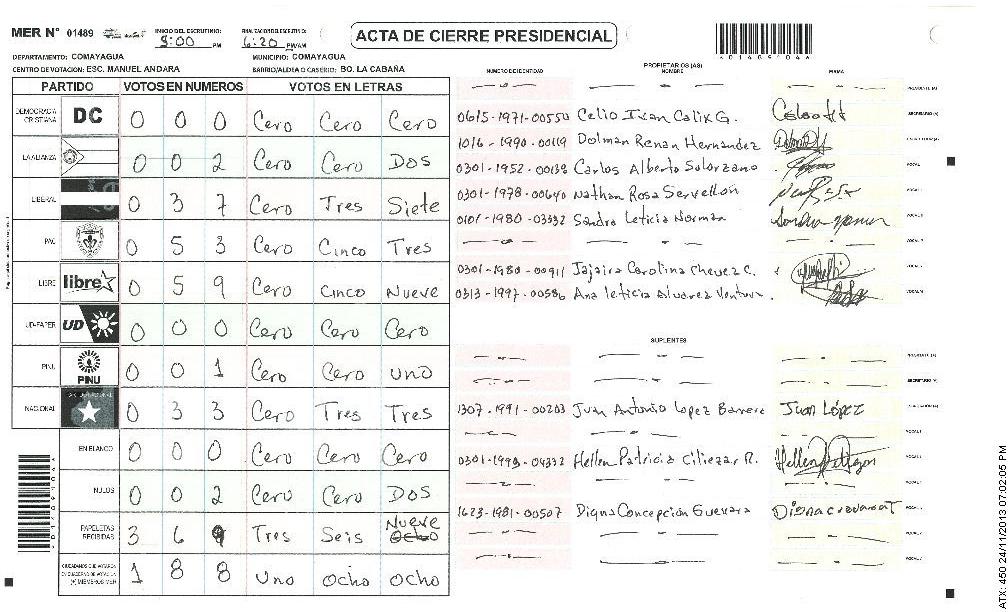 MER N° 01489 INICIO DEL ESCRUTINIO: 8:00 PM FINALIZACION ESCRUTINIO: 6:20 PM/AM ACTA DE CIERRE PRESIDENCIAL
DEPARTAMENTO: COMAYAGUA MUNICIPIO: COMAYAGUA
CENTRO DE VOTACION: ESC. MANUEL ANDARA BARRIO/ALDEA O CASERIO: BO. LA CABAÑA
PARTIDO VOTOS EN NUMEROS VOTOS EN LETRAS
DEMOCRACIA CRISTIANA DC 0 0 0 Cero Cero Cero
LA ALIANZA 0 0 2 Cero Cero Dos
LIBERAL 0 3 7 Cero Tres Siete
PAC 0 5 3 Cero Cinco Tres
LIBRE libre 0 5 9 Cero Cinco Nueve
UD-FAPER UD 0 0 0 Cero Cero Cero
PINU PINU 0 0 1 Cero Cero uno
NACIONAL 0 3 3 Cero Tres Tres
EN BLANCO 0 0 0 Cero Cero Cero
NULOS 0 0 2 Cero Cero Dos
PAPELETAS RECIBIDAS 3 6 9 Tres Seis Nueve Ocho
CIUDADANOS QUE VOTARON EN CUADERNO DE VOTACION (+) MIEMBROS MER 1 8 8 uno ocho ocho
NUMERO DE IDENTIDAD PROPIETARIOS (AS) NOMBRE FIRMA
PRESIDENTE (A)
0615-1971-00550 Celio Ivan Calix G. SECRETARIO (A)
1016-1990-00119 Dolman Renan Hernandez
0301-1952-00139 Carlos Alberto Solorzano
0301-1978-00640 Nathan Rosa Servellon
0101-1980-03332 Sandra Leticia Norman
0301-1980-00911 Jajaira Carolina Chevez C.
0313-1997-00586 Ana leticia Alvarez Ventura
SUPLENTES
1307-1991-00203 Juan Antonio Lopez Juan López
0301-1993-04332 Hellen Patricia Ciliezar R.
1623-1981-00507 Digna Concepción Guevara
401489104A
ATX: 450 24/11/2013 07:02:05 PM